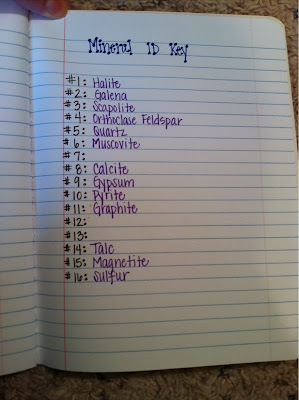 Mineral ID Key
#1: Halite
#2: Galena
#3: Scapolite
#4: Orthoclase Feldspar
#5: Quartz
#6: Muscovite
#7:
#8: Calcite
#9: Gypsum
#10: Pyrite
#11: Graphite
#12:
#13:
#14: Talc
#15: Magnetite
#16: Sulfur